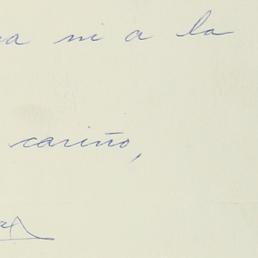 ni a la
cariño,